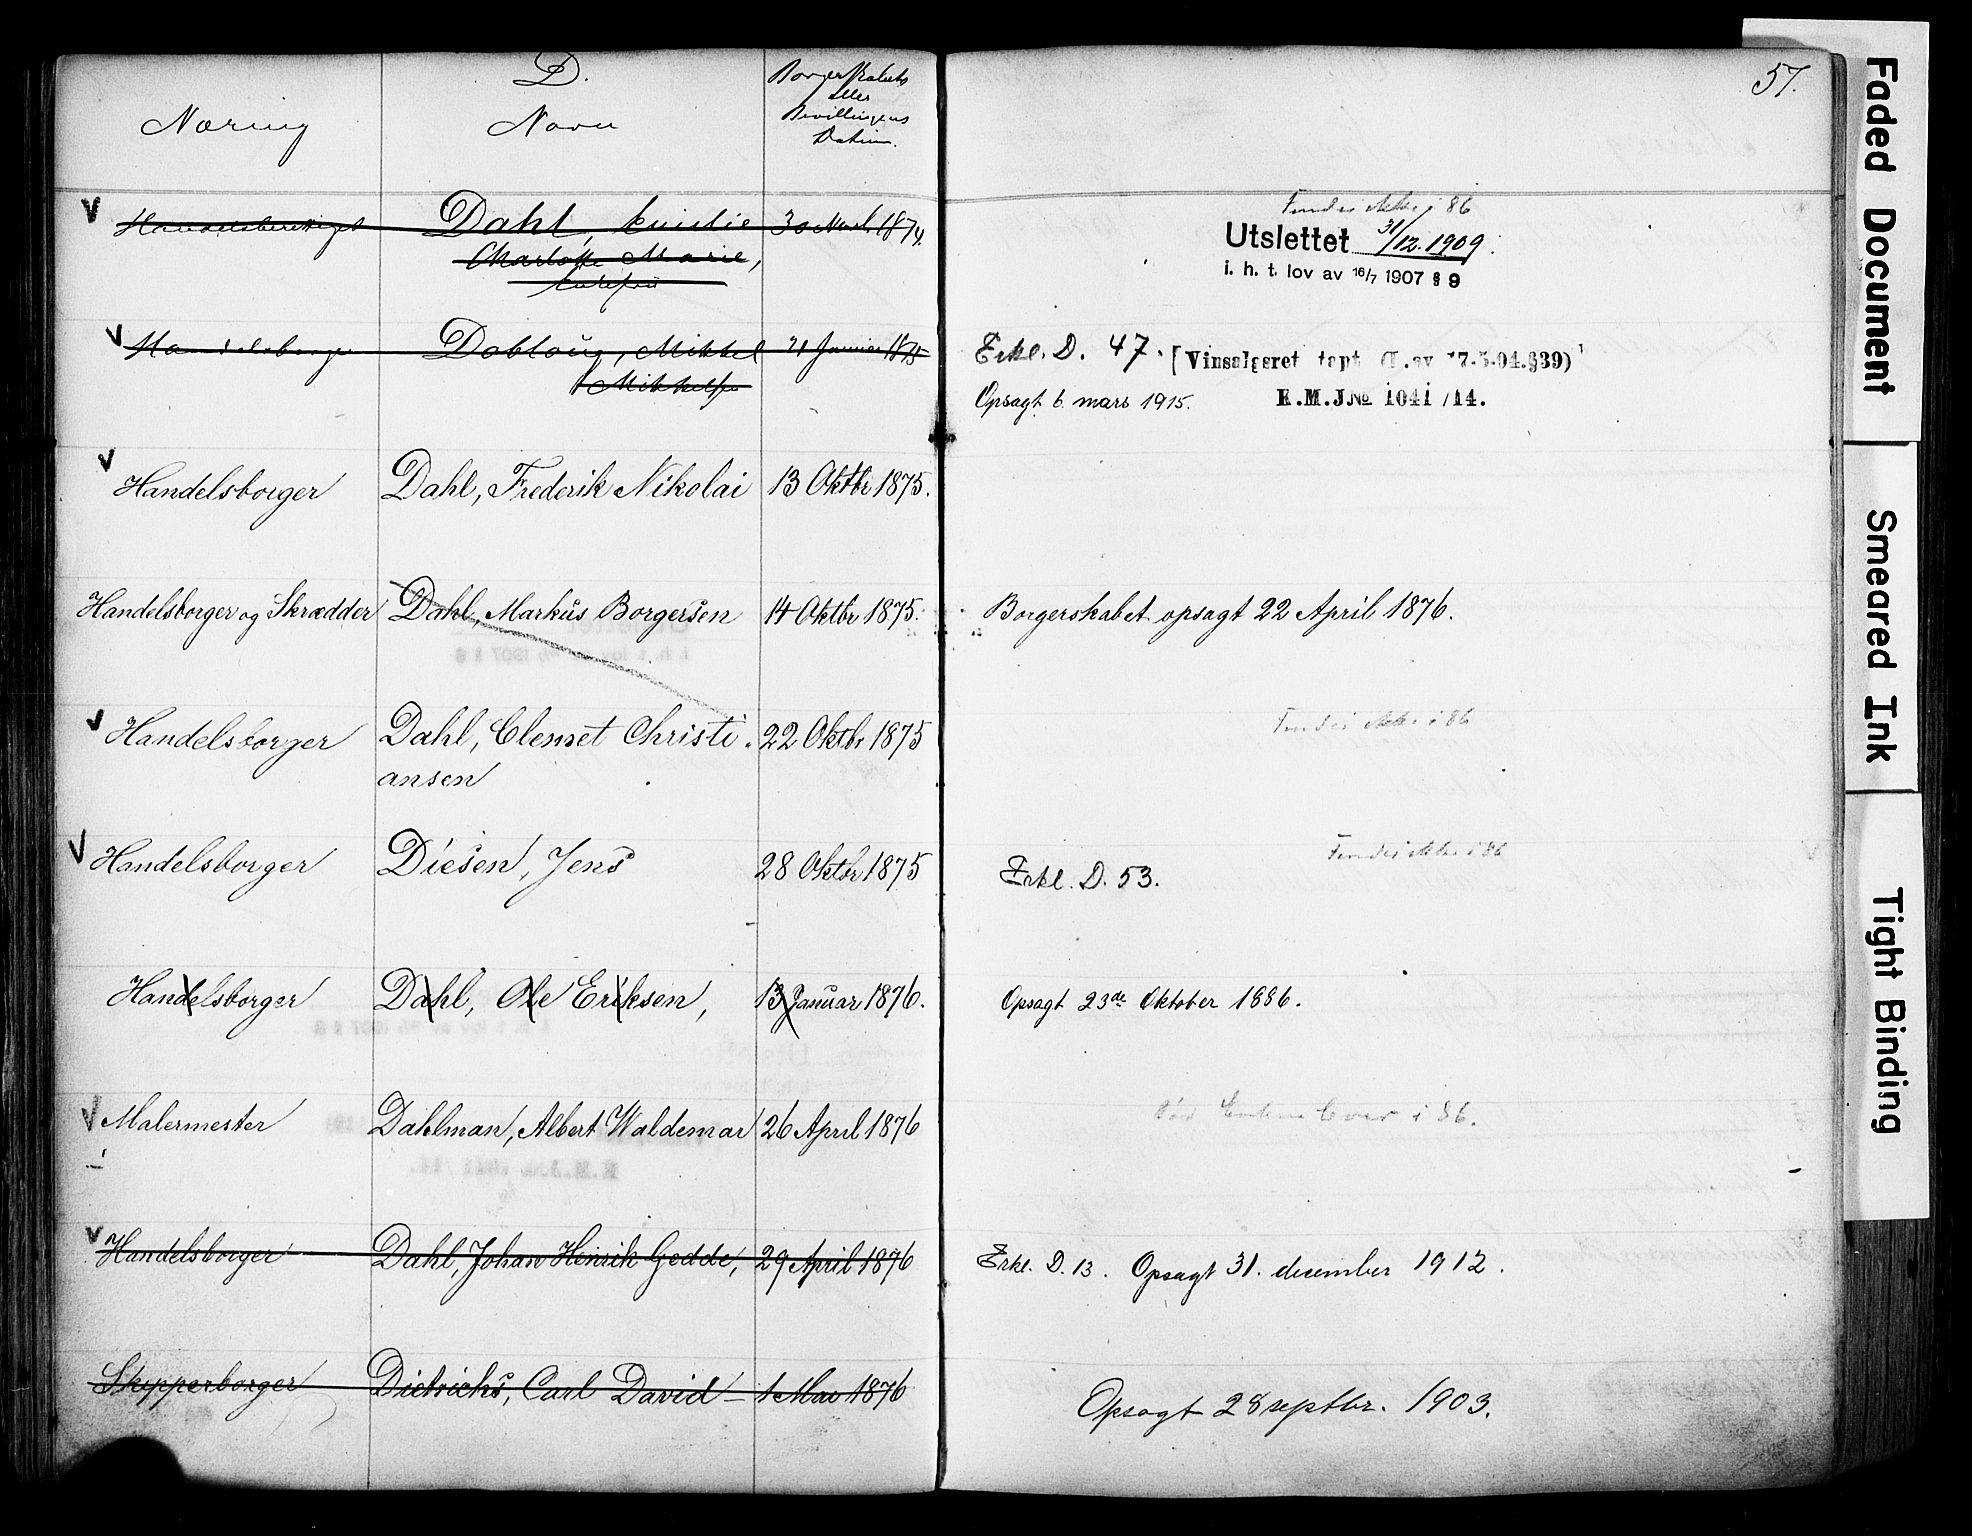 D.
57.
Næring
Navn
Borgerskabets
eller
Bevillingens
Datum.
V Handelsberettiget Dahl, Emilie 30 Novbr 1874.
Charlotte Marie,
Findes ikke i 86
Utslettet 31/12.1909.
i. h. t. lov av 16/7 1907 § 9
V Handelsborger Dobloug, Mikkel 21 Januar 1875
Mikkelsen
Erkl. D. 47. [Vinsalgsret tapt (L. av 17.5.04.§39)
Opsagt 6. mars 1915. E.M.J№ 1041/14.
V Handelsborger Dahl, Frederik Nikolai 13 Oktbr 1875.
Handelsborger og Skrædder Dahl, Markus Borgersen 14 Oktbr 1875. Borgerskabet opsagt 22 April 1876.
V Handelsborger Dahl, Clemet Christi- 22 Oktbr 1875 Findes ikke i 86
ansen
V Handelsborger Diesen, Jens 28 Oktbr 1875 Findes ikke i 86
Erkl. D. 53.
Handelsborger Dahl, Ole Eriksen, 13 Januar 1876. Opsagt 23de Oktober 1886.
V Malermester Dahlman, Albert Waldemar 26 April 1876 i 86.
V Handelsborger Dahl, Johan Henrik Gedde, 29 April 1876 Erkl. D. 13. Opsagt 31. december 1912.
Skipperborger Dietrichs, Carl David - 1 Mai 1876 Opsagt 28 septbr. 1903.
Faded Document
Smeared Ink
Tight Binding